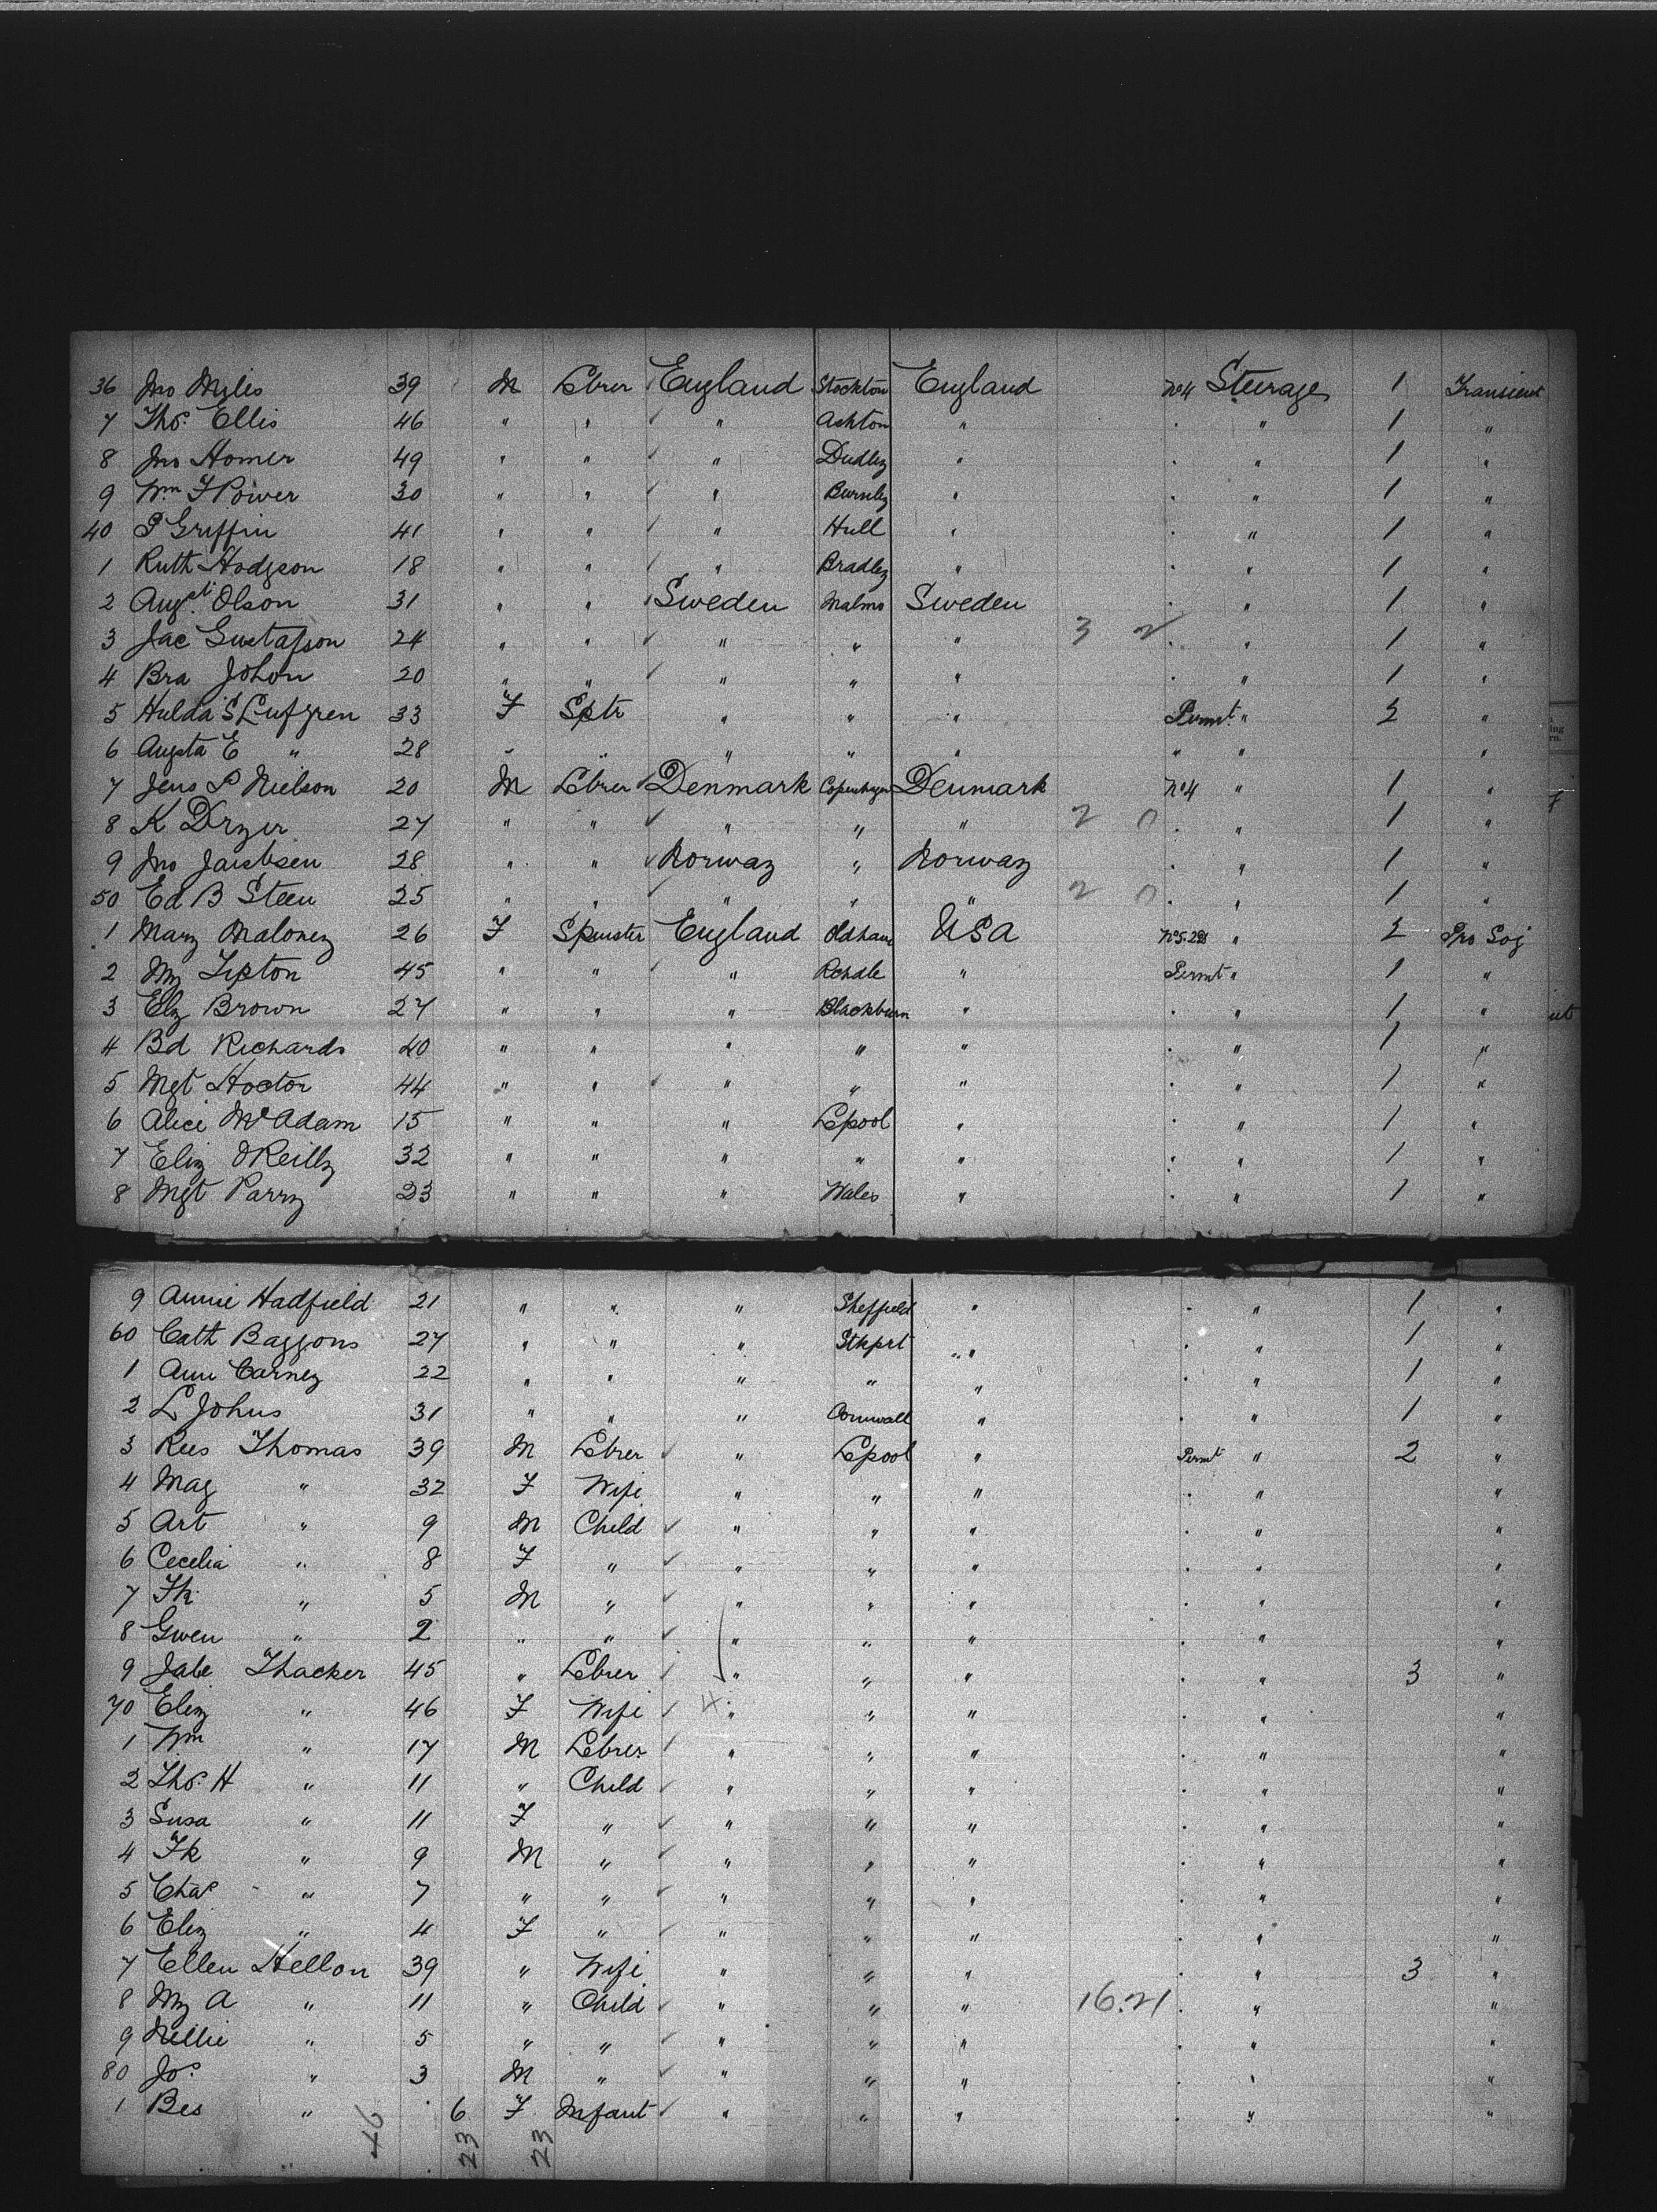 36 Jno Myles 39 M Lbrer England Stockton England No4 Steerage 1 Transient
7 Thos. Ellis 46 " " " Ashton " " " 1 "
8 Jno Homer 49 " " " Dudley " " " 1 "
9 Wm F Power 30 " " " Burnley " " " 1 "
40 P Griffin 41 " " " Hull " " " 1 "
1 Ruth Hodgson 18 " " " Bradley " " " 1 "
2 Augst. Olson 31 " " Sweden Malmo Sweden " " 1 "
3 Jac Gustafson 24 " " " " " 3 2 " " 1 "
4 Bra Johon 20 " " " " " " " 1 "
5 Hulda S Lufgren 33 F Sptr " " " Permt. " 2 "
6 Augsta E " 28 " " " " " " " "
7 Jens P Nielson 20 M Lbrer Denmark Copenhagen Denmark No4 " 1 "
8 K Dryer 27 " " " " " 2 0 " " 1 "
9 Jno Jacobsen 28 " " Norway " Norway " " 1 "
50 Ed B Steen 25 " " " " " 2 0 " " 1 "
1 Mary Maloney 26 F Spinster England Oldham USA No5. " 2 Pro Soj
2 My Tipton 45 " " " Rchdle " Permt " 1 "
3 Elz Brown 27 " " " Blackburn " " " 1 "
4 Bd Richards 40 " " " " " " " 1 "
5 Mgt Hoctor 44 " " " " " " " 1 "
6 Alice McAdam 15 " " " Lpool " " " 1 "
7 Eliz OReilly 32 " " " " " " " 1 "
8 Mgt Parry 23 " " " Wales " " " 1 "
9 Annie Hadfield 21 " " " Sheffield " " " 1 "
60 Cath Baggons 27 " " " Stkprt " " " 1 "
1 Ann Carney 22 " " " " " " " 1 "
2 L Johns 31 " " " Cornwall " " " 1 "
3 Rees Thomas 39 M Lbrer " Lpool " Permt " 2 "
4 Mag " 32 F Wife " " " " " "
5 Art " 9 M Child " " " " " "
6 Cecelia " 8 F " " " " " " "
7 Fk. " 5 M " " " " " " "
8 Gwen " 2 " " " " " " " "
9 Jabe Thacker 45 " Lbrer " " " " " 3 "
70 Eliz " 46 F Wife 4 " " " " " "
1 Wm " 17 M Lbrer " " " " " "
2 Thos. H " 11 " Child " " " " " "
3 Susa " 11 F " " " " " " "
4 Fk " 9 M " " " " " " "
5 Chas " 7 " " " " " " " "
6 Eliz " 4 F " " " " " " "
7 Ellen Hellon 39 " Wife " " " " " 3 "
8 My A " 11 " Child " " " 16.21 " " "
9 Nellie " 5 " " " " " " " "
80 Jos. " 3 M " " " " " " "
1 Bes " 6 F Infant " " " " " "
46 23 23